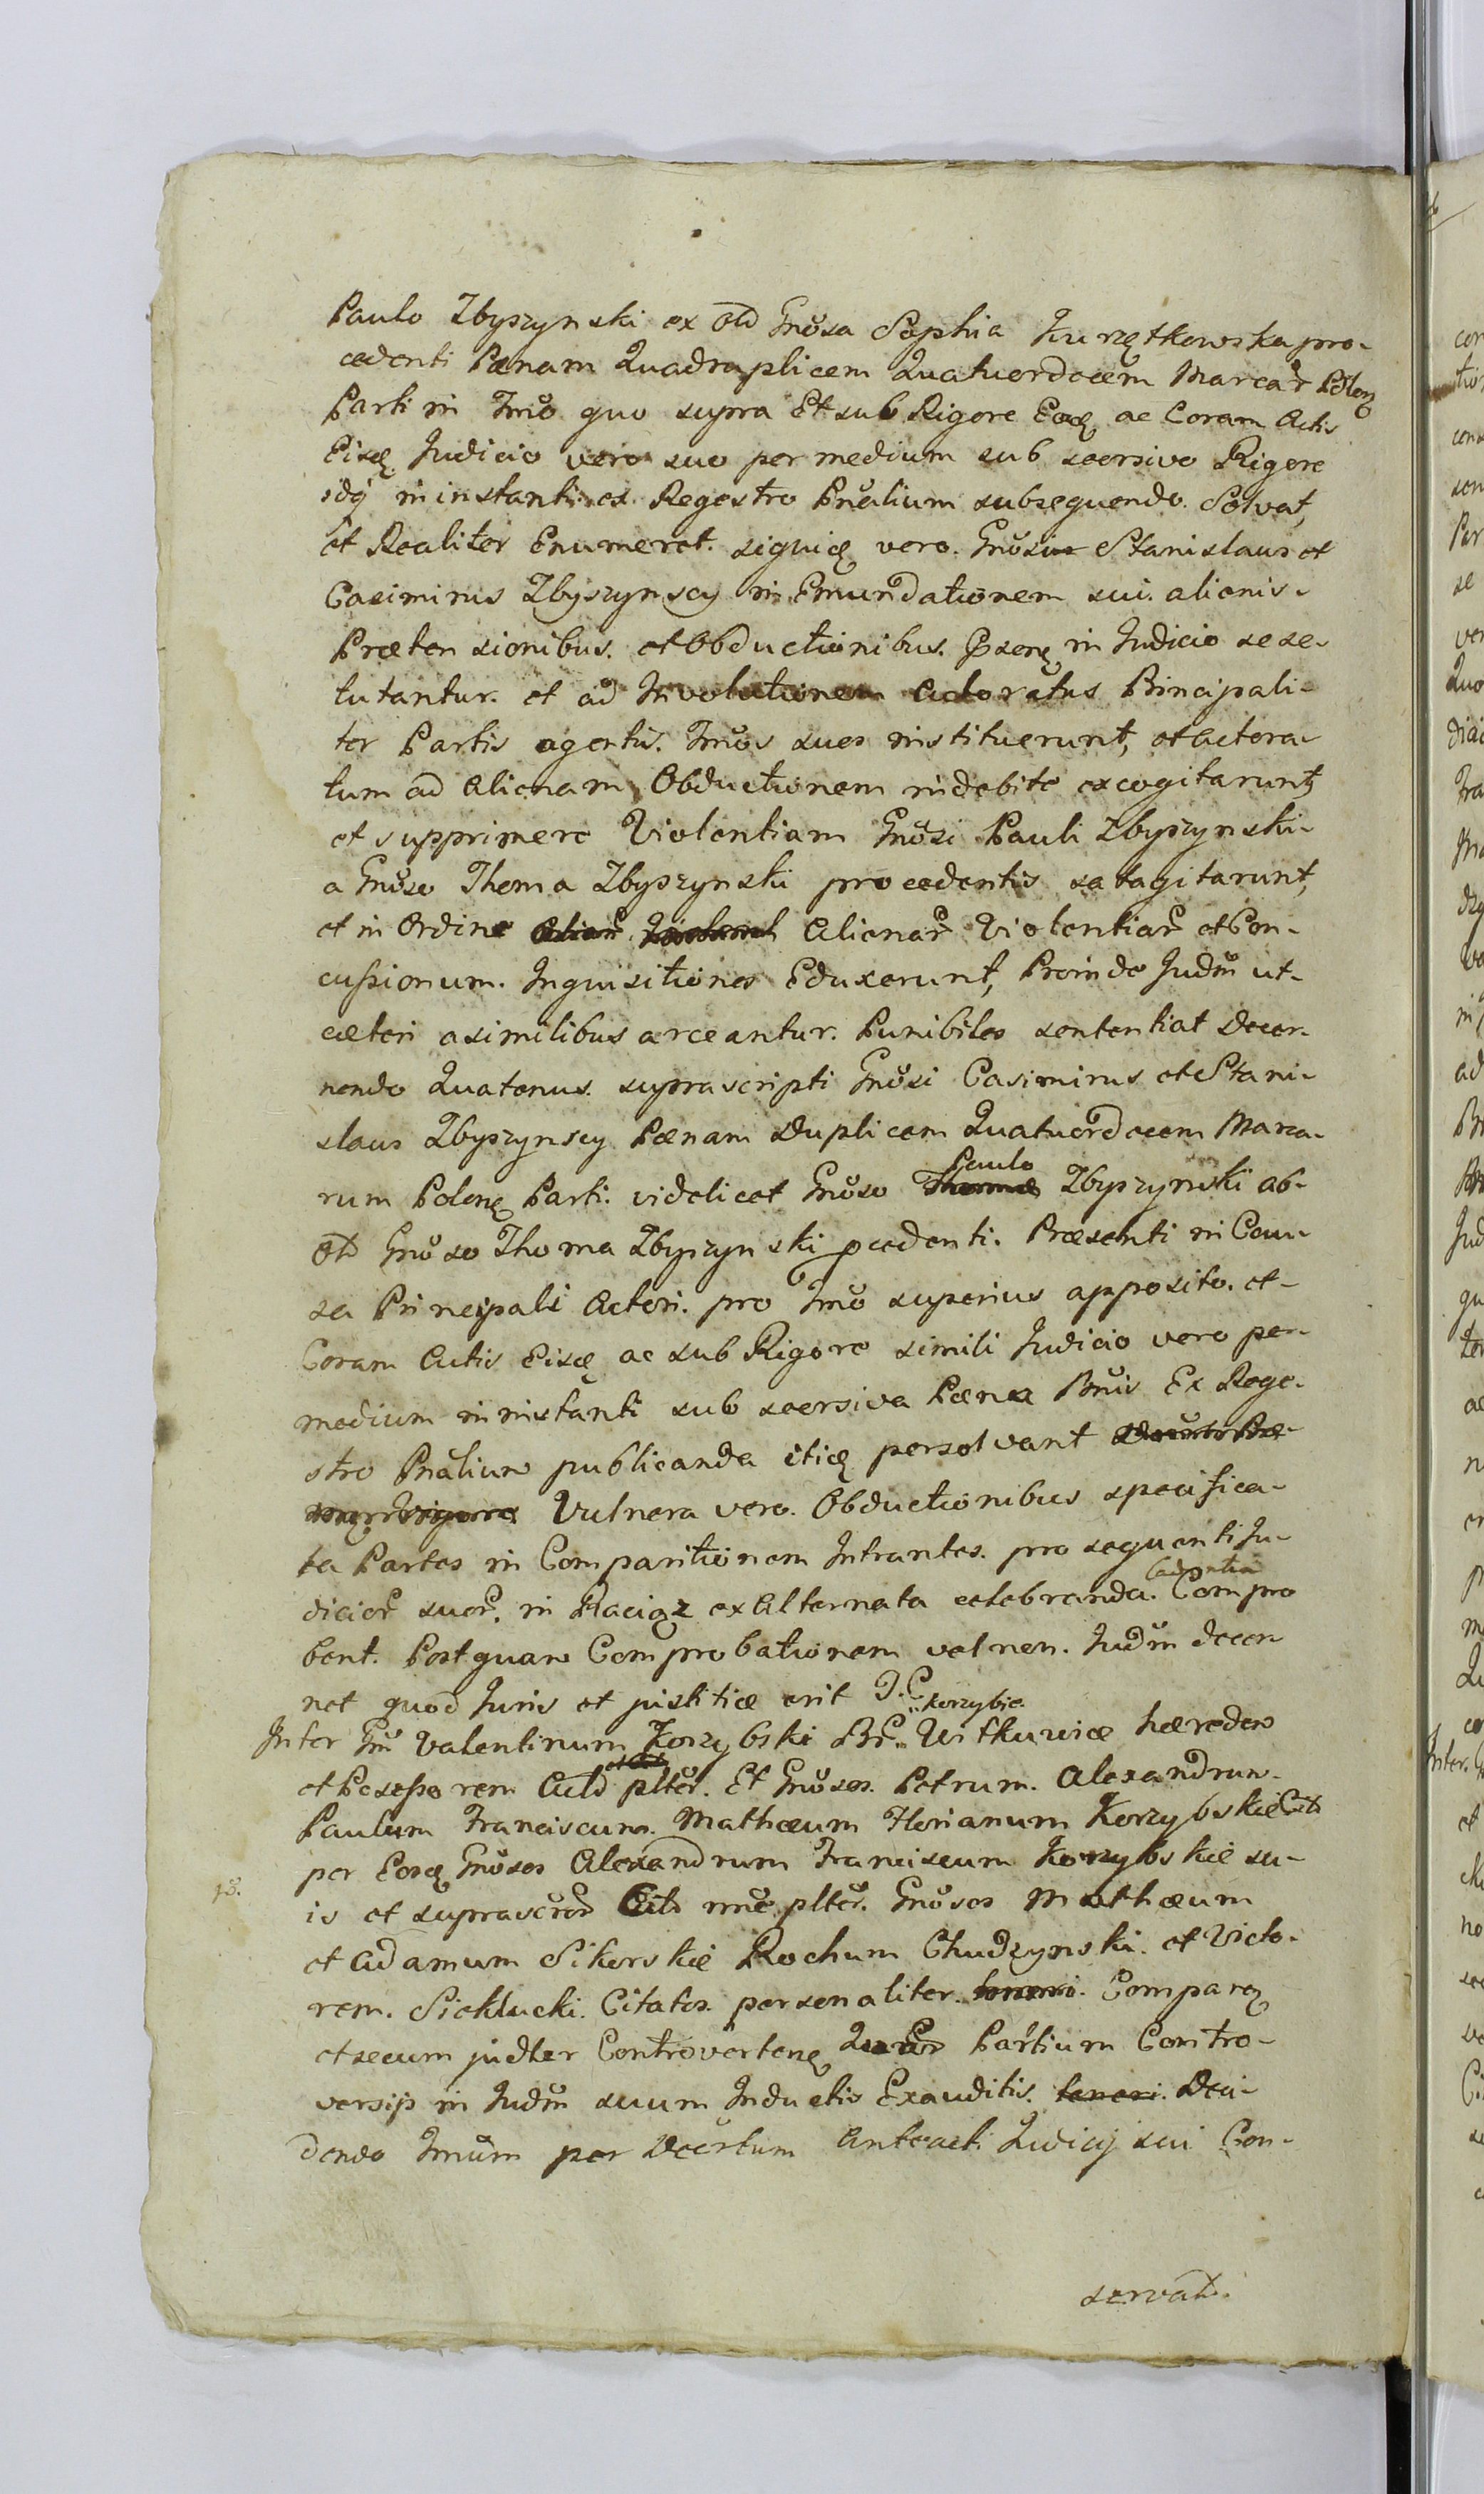 Paulo Zbyszynski ex Old Gnősa Sophia Kurzętkowska pro-
cedenti Pænam Quadruplicem Quatuordecem Marcar̃ Polonę
Parti in Tm̃o quo supra Et sub Rigore Eodę ac Coram Actis
Eisdę Judicio vero suo per medium sub seorsivo Rigore
idq́ in instanti ex Regestro Pnãlium subsequendo Solvat,
et Realiter Enumeret. siquidę vero. Gnősi Stanislaus et
Casimirus Zbyszynscy in Emundationem sui. alienis.
Præten sionibus. et Obductionibus. in Judicio sese
tutantur. et ad Involutionem Actoratus Principali-
ter Partis agentis. Tm̃os suos instituerunt, et actora-
tum ad Alienam Obductionem indebite excogitarunt
et supprimere Violentiam Gnősi Pauli Zbyszynski-
a Gnőso Thoma Zbyszynski procedentis satagitarunt,
et in Ordine Alienar̃ Violentiar̃ et Con-
cussionum. Inquisitiones Eduxerunt, Proinde Judm̃ ut-
cæteri a similibus arceantur. Punibiles sententiat Decer-
nendo Quatenus. suprascripti Gnősi Casimirus et Stani-
slaus Zbyszynscy Pænam Duplicem Quatuordecem Marca-
rum Polonę Parti. videlicet Gnőso Thomæ Paulo Zbyszynski ab-
Old Gnőso Thoma Zbyszynski pcedenti. Præsenti in Cau-
sa Principali Actori. pro Tm̃o superius apposito. et-
Coram Actis Eisdę ac sub Rigore simili Judicio vero per-
medium in instanti sub seorsiva Pæna Bm̃is Ex Rege-
stro Pnãlium publicanda itidę persolvant
Vulnera vero. Obductionibus specifica-
ta Partes in Comparitionem Intrantes. pro sequenti Ju-
dicior̃ suor̃. in Raciąz ex Alternata celebranda. Cadentia Compro
bent. Postquam Comprobationem vel non. Judm̃ decer-
net quod Juris et justitiæ erit D. C.
Inter Gm̃ Valentinum Korzybski Br̃. Korzybie Witkuwiæ hæredem
et Posessorem Actð pltẽr. Et Gnősos. Petrum. Alexandrum.
Paulum Franciscum. Mathæum Florianum Korzybskie Citð
per Eosdę Gnősos Alexandrum Franciscum Korzybskie su-
13. is et suprascr̃os Citð nnẽ pltẽr. Gnősos Mathæum
et Adamum Sikorskie Rochum Chudzynski. et Victo-
rem. Sieklucki. Citatos. personaliter. Comparę
et secum jndter Controvertenę Quar̃ Partium Contro-
versijs in Judm̃ suum Inductis Exauditis. teneri. Deci-
dendo Tm̃um per Decrtum Anteacti Judicij sui Con-
servat.